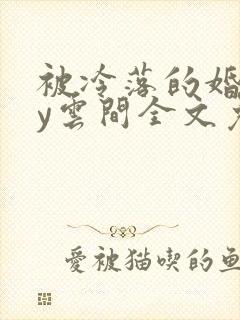 被冷落的婚
y雲間全文
愛被猫喫的魚